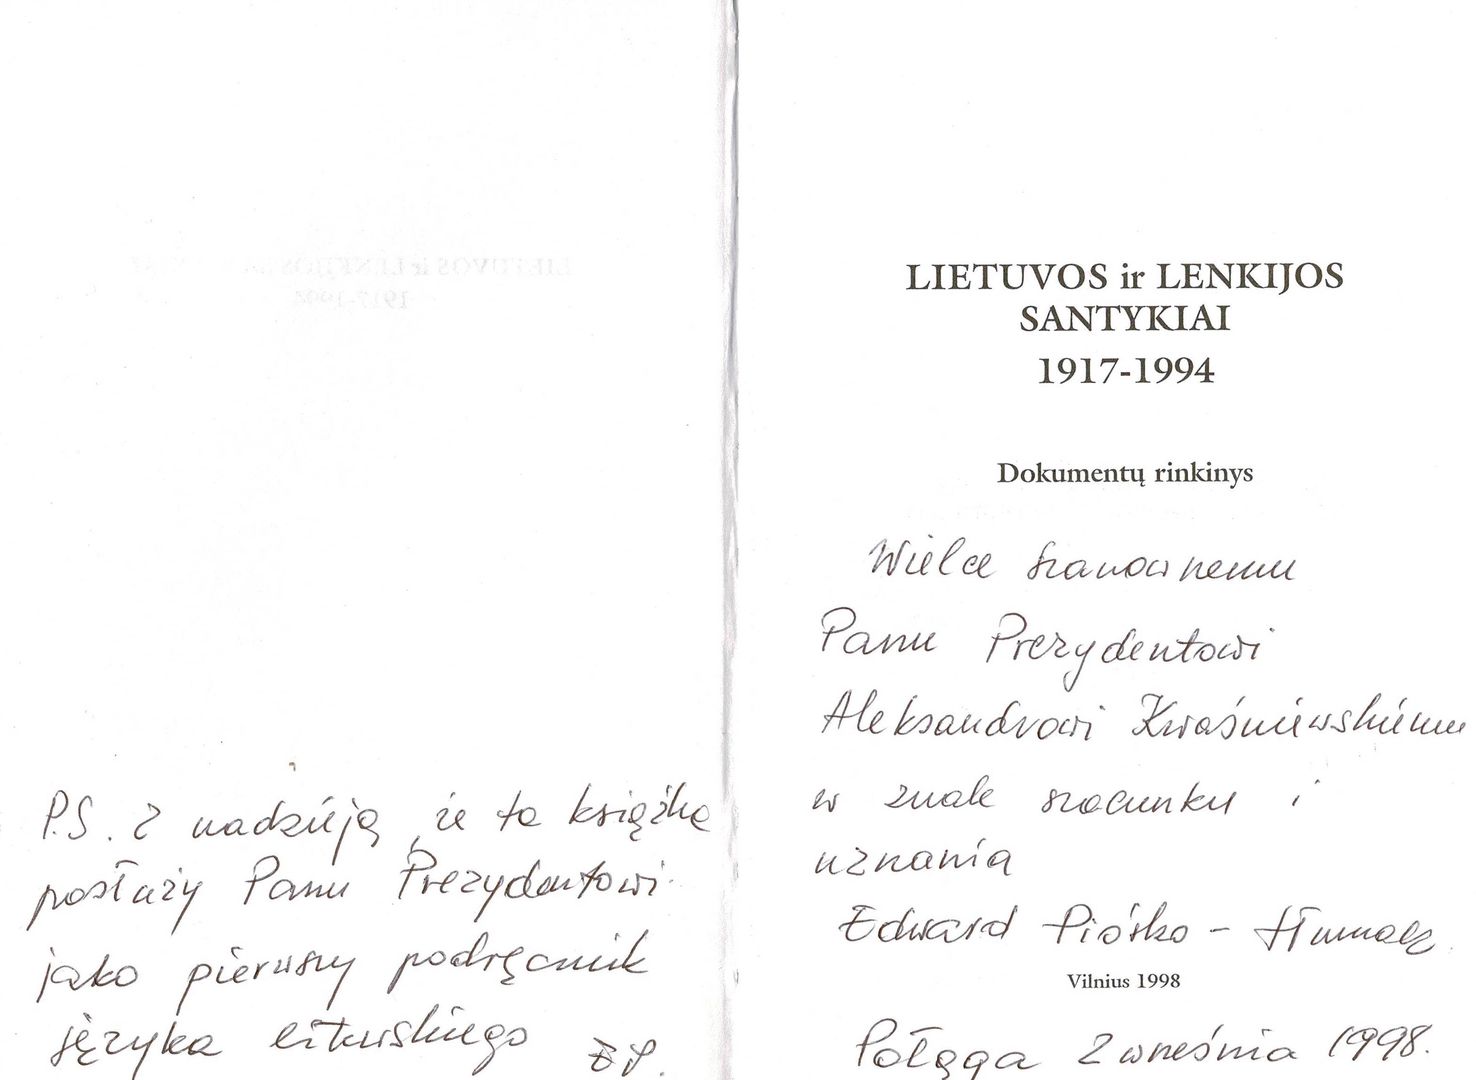 P.S. Z nadzieją, że ta książka
posłuży Panu Prezydentowi
jako pierwszy podręcznik
języka litewskiego EP.
LIETUVOS ir LENKIJOS
SANTYKIAI
1917-1994
Dokumentų rinkinys
Wielce szanownemu
Panu Prezydentowi
Aleksandrowi Kwaśniewskiemu
w znak szacunku i
uznania
Edward Piórko - tłumacz
Vilnius 1998
Połąga 2 września 1998.